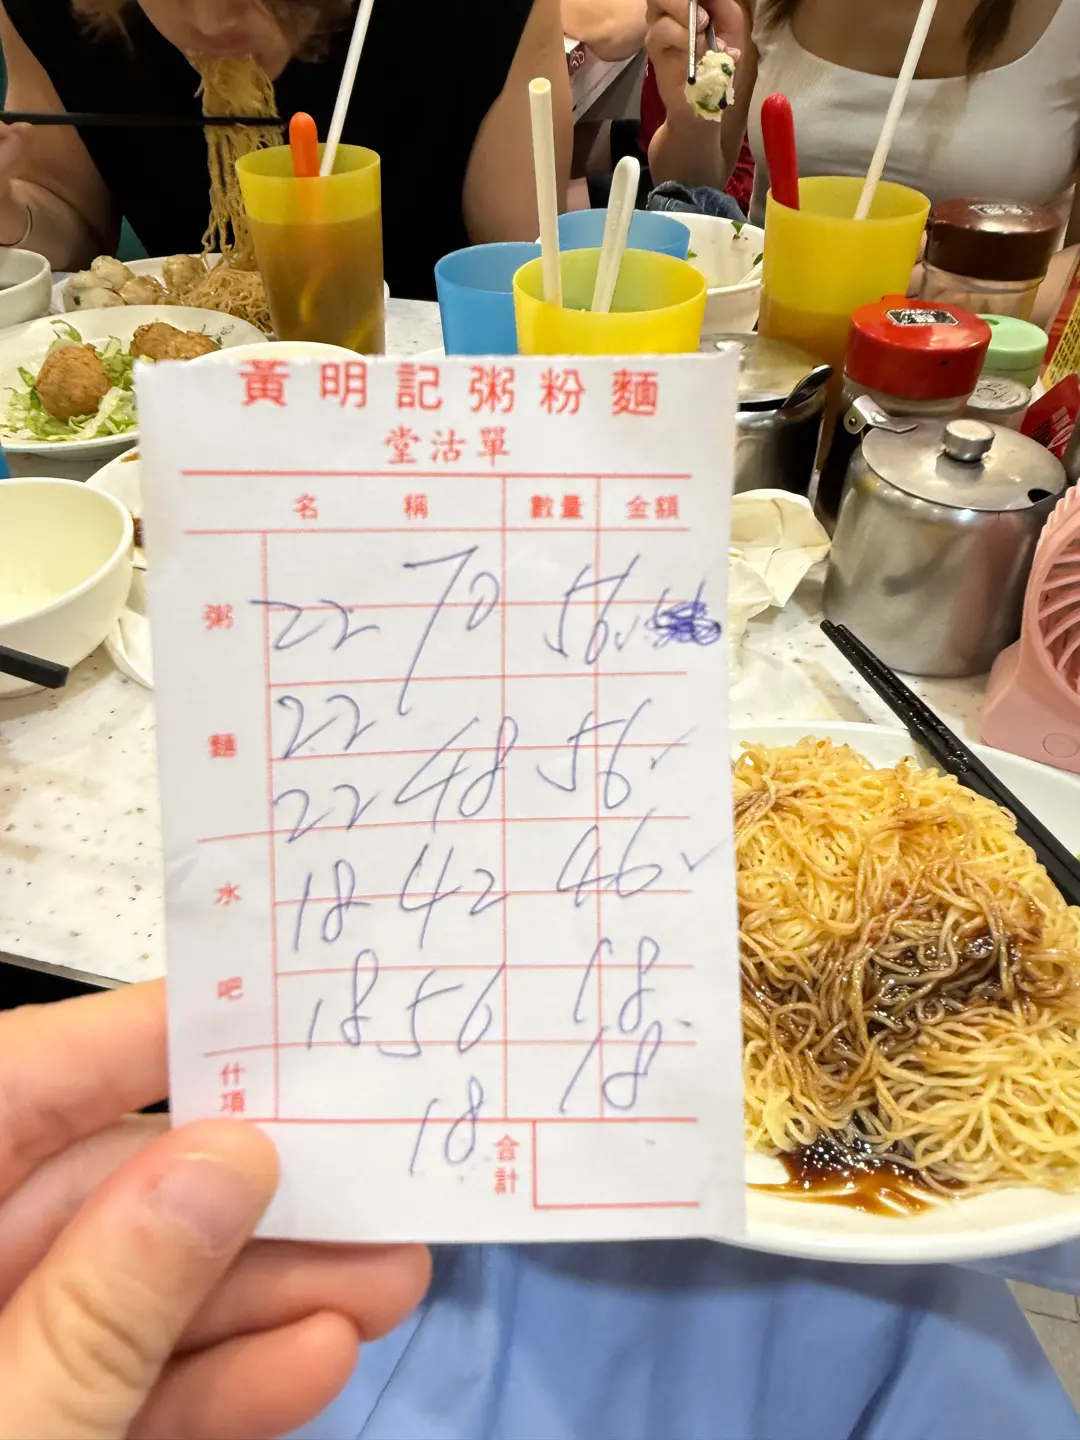 黃明記粥粉麵
堂沽單
名稱 數量 金額
粥
22 70 56
麵
22
22 48 56
水吧
18 42 46
18 56 18
什項
18
18
合計